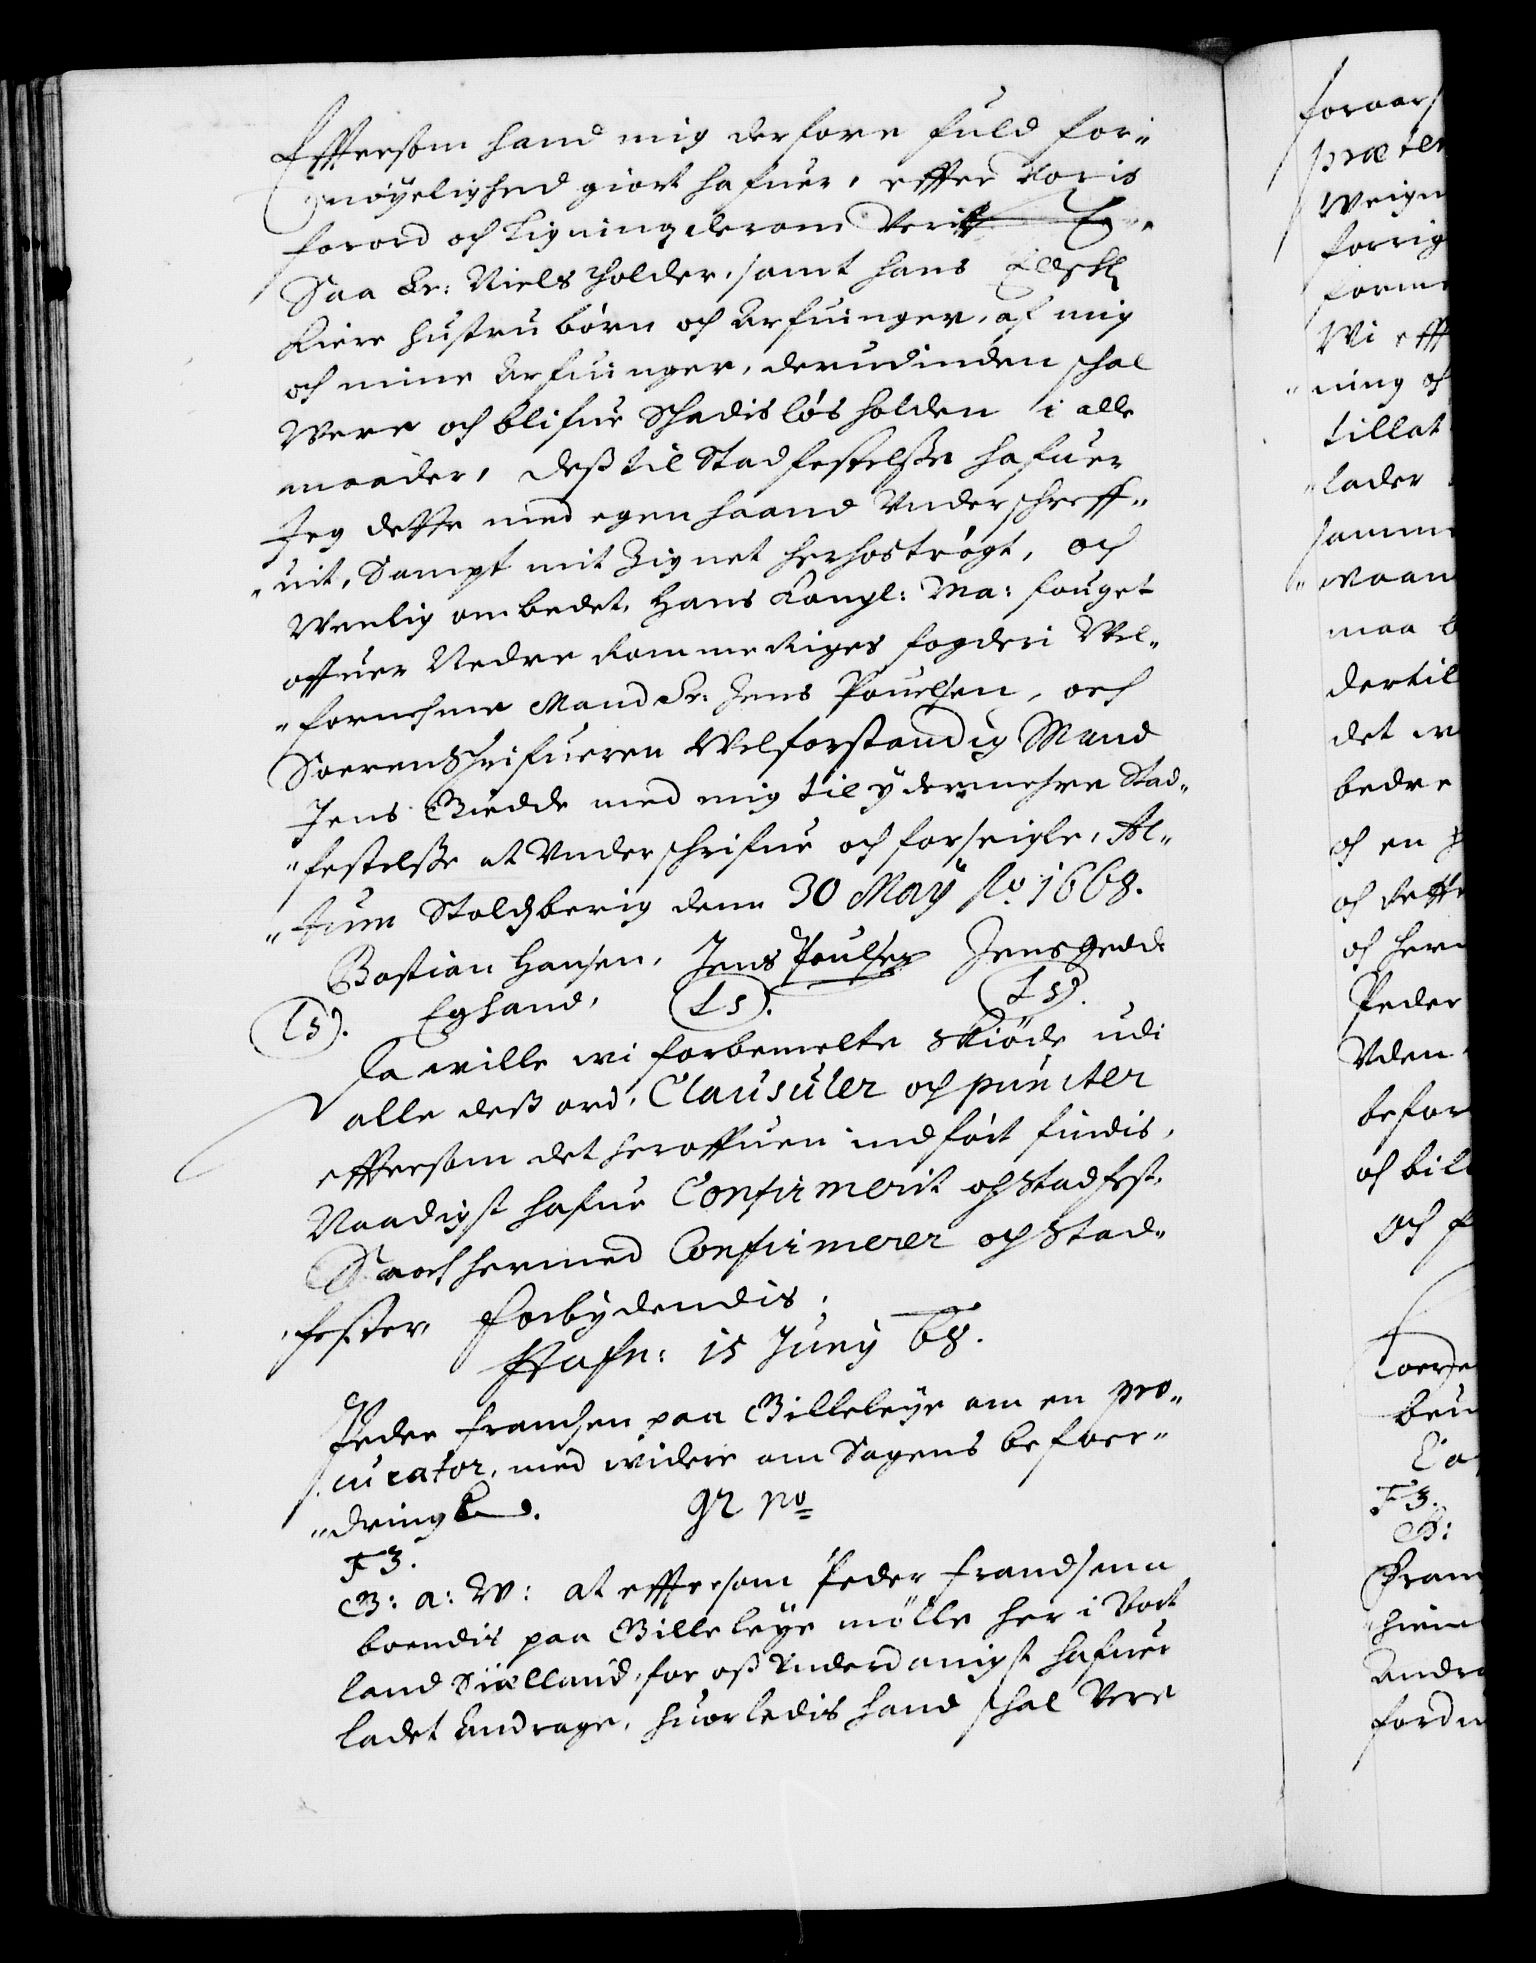 Effersom hand mig derfore fuld for¬
nøyelighed giort hafuer, effter Voris
forord och Ligning derom Verit
Saa Sr: Niels Holder, samt hans Elskl
Kiere hustru børn och Arfuinger, af mig
och mine Arfuinger, derudinden schal
Were och blifue Schadisløs holden i alle
maader, deß til Stadfestelße hafuer
Jeg dette med egen haand Underschreff¬
uit, Sampt mit Zignet herhostrøgt, och
Wenlig ombedet, Hans Kongl: Ma: fouget
offuer Nedre Rommeriges fogderi Wel¬
fornehme Mand Sr: Jens Pouelsen, och
Sorenschrifueren Welforstandig Mand
Jens Giedde med mig til ydermehre Stad¬
festelße at Underschrifue och forseigle, Ac¬
tum Stolsberig denn 30 May Ao 1668.
Bastian Hansen, Jens Poulsen Jens Gedde
(LS). Eghand, (LS). (LS).
Da wille wi forbemelte Skiøde udi
alle deß ord, Clausuler och puncter
effersom det herofuen indført findis,
Naadigst hafue Confirmerit och stadfest,
Saa och hermed Confirmerer och Stad¬
fester, Forbydendis,
Hafn: 15 Junÿ 68.
Peder Frandsen paa Gilleleye om en pro¬
curator, med widere om Sagens befoer¬
dring. gr No
F 3.
G: a: W: at effersom Peder Frandsenn
boendis paa Gilleleÿe mølle her i Vort
land Siælland, for oß Underdanigst hafuer
ladet Andrage, huorledis hand schal Vere
foraars
præter
Weign
forrig
forme
Wi eff
ning och
tillat
lader
samme
waan
maa b
dertil
det w
bedre
och en
och deff
och her
Peder
Uden
befor
och bil
Och f
beu
F 3.
G:
Fran
Andra
fordn